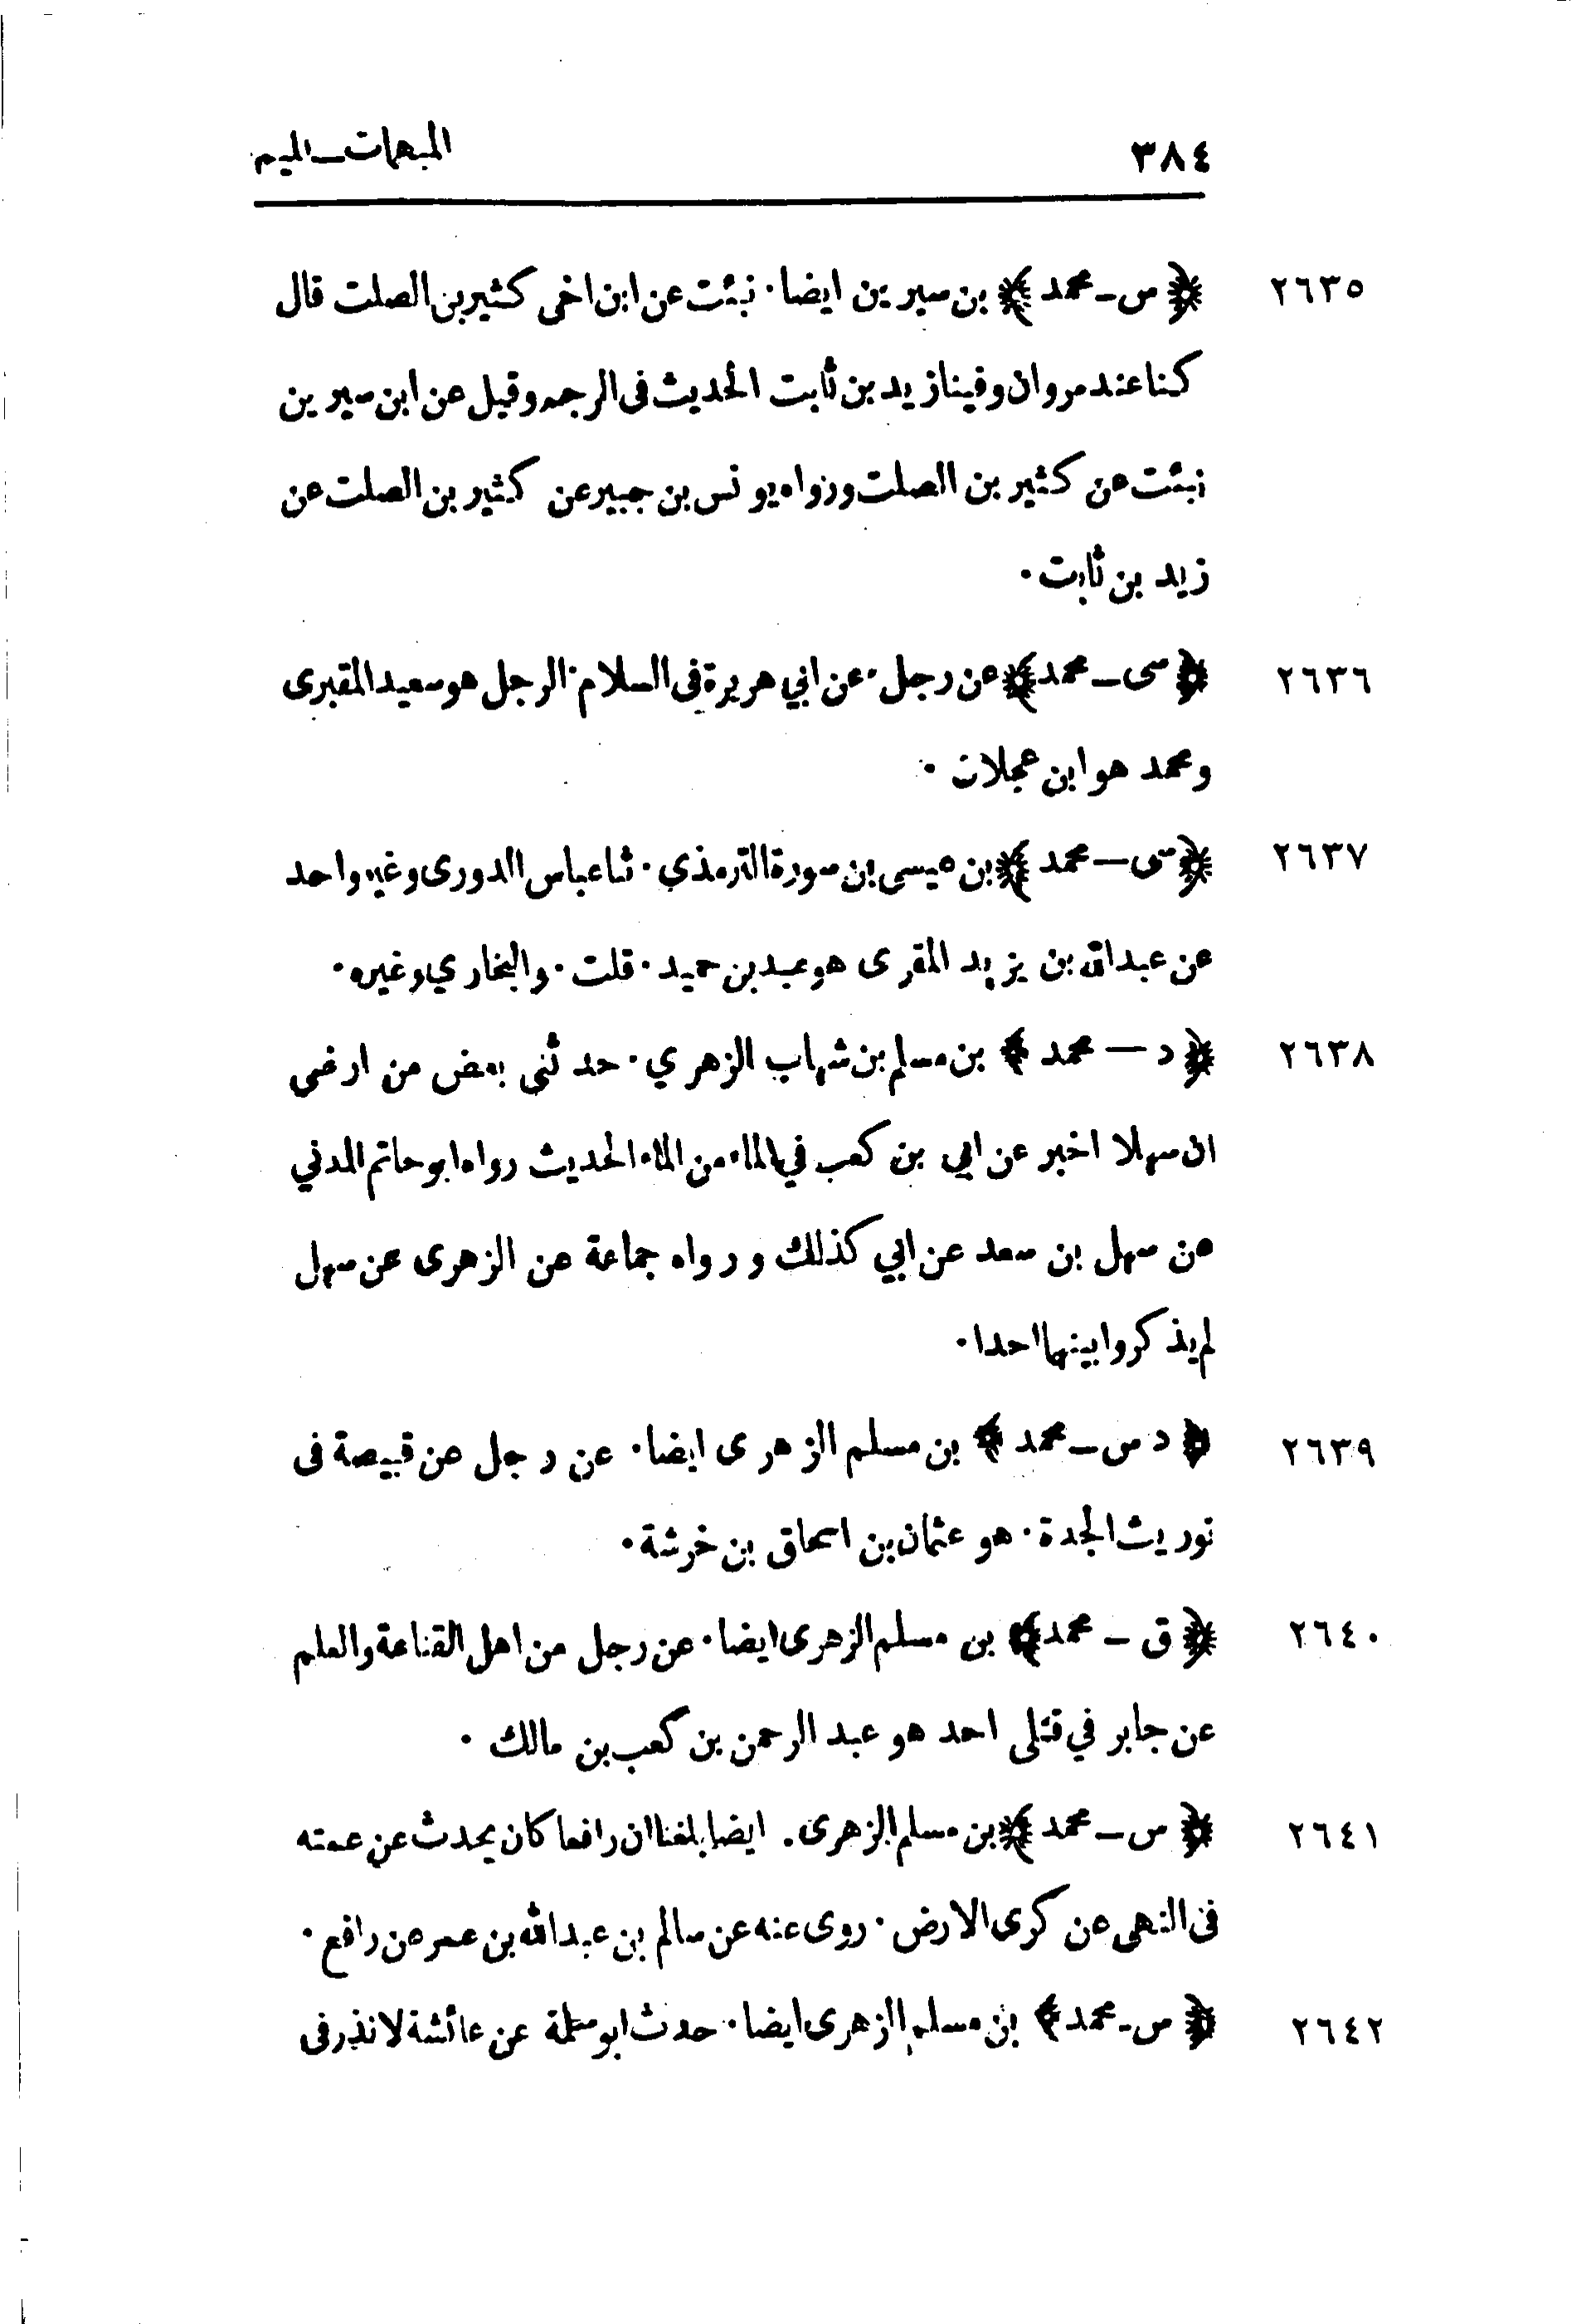 ٣٨٤ المبهمات ـ الميم
٢٦٣٥ ﴿ س ـ محمد ﴾ بن سيرين ايضا · نبئت عن ابن اخى كثير بن الصلت قال
كنا عند مروان وفينا زيد بن ثابت الحديث فى الرجم وقيل عن ابن سيرين
نبئت عن كثير بن الصلت ورواه يونس بن جبير عن كثير بن الصلت عن
زيد بن ثابت ·
٢٦٣٦ ﴿ سى ـ محمد ﴾ عن رجل · عن ابي هريرة فى السلام · الرجل هو سعيد المقبرى
ومحمد هو ابن عجلان ·
٢٦٣٧ ﴿ سى ـ محمد ﴾ بن عيسى بن سورة الترمذي · ثنا عباس الدورى وغير واحد
عن عبدالله بن يزيد المقرى هو عبد بن حميد · قلت · والبخاري وغيره ·
٢٦٣٨ ﴿ د ـ محمد ﴾ بن مسلم بن شهاب الزهري · حدثنى بعض من ارضى
ان سهلا اخبر عن ابي بن كعب في الماء من الماء الحديث رواه ابو حاتم المدني
عن سهل بن سعد عن ابي كذلك ورواه جماعة عن الزهرى عن سهل
لم يذكروا بينهما احدا ·
٢٦٣٩ ﴿ د س ـ محمد ﴾ بن مسلم الزهرى ايضا · عن رجل عن قبيصة فى
توريث الجدة · هو عثمان بن اسحاق بن خرشة ·
٢٦٤٠ ﴿ ق ـ محمد ﴾ بن مسلم الزهرى ايضا · عن رجل من اهل القناعة والعلم
عن جابر في قتلى احد هو عبد الرحمن بن كعب بن مالك ·
٢٦٤١ ﴿ س ـ محمد ﴾ بن مسلم الزهرى . ايضا بلغنا ان رافعا كان يحدث عن عمته
فى النهى عن كرى الارض · روى عنه عن سالم بن عبدالله بن عمر عن رافع ·
٢٦٤٢ ﴿ س ـ محمد ﴾ بن مسلم الزهرى ايضا · حدث ابو سلمة عن عائشة لا نذر فى